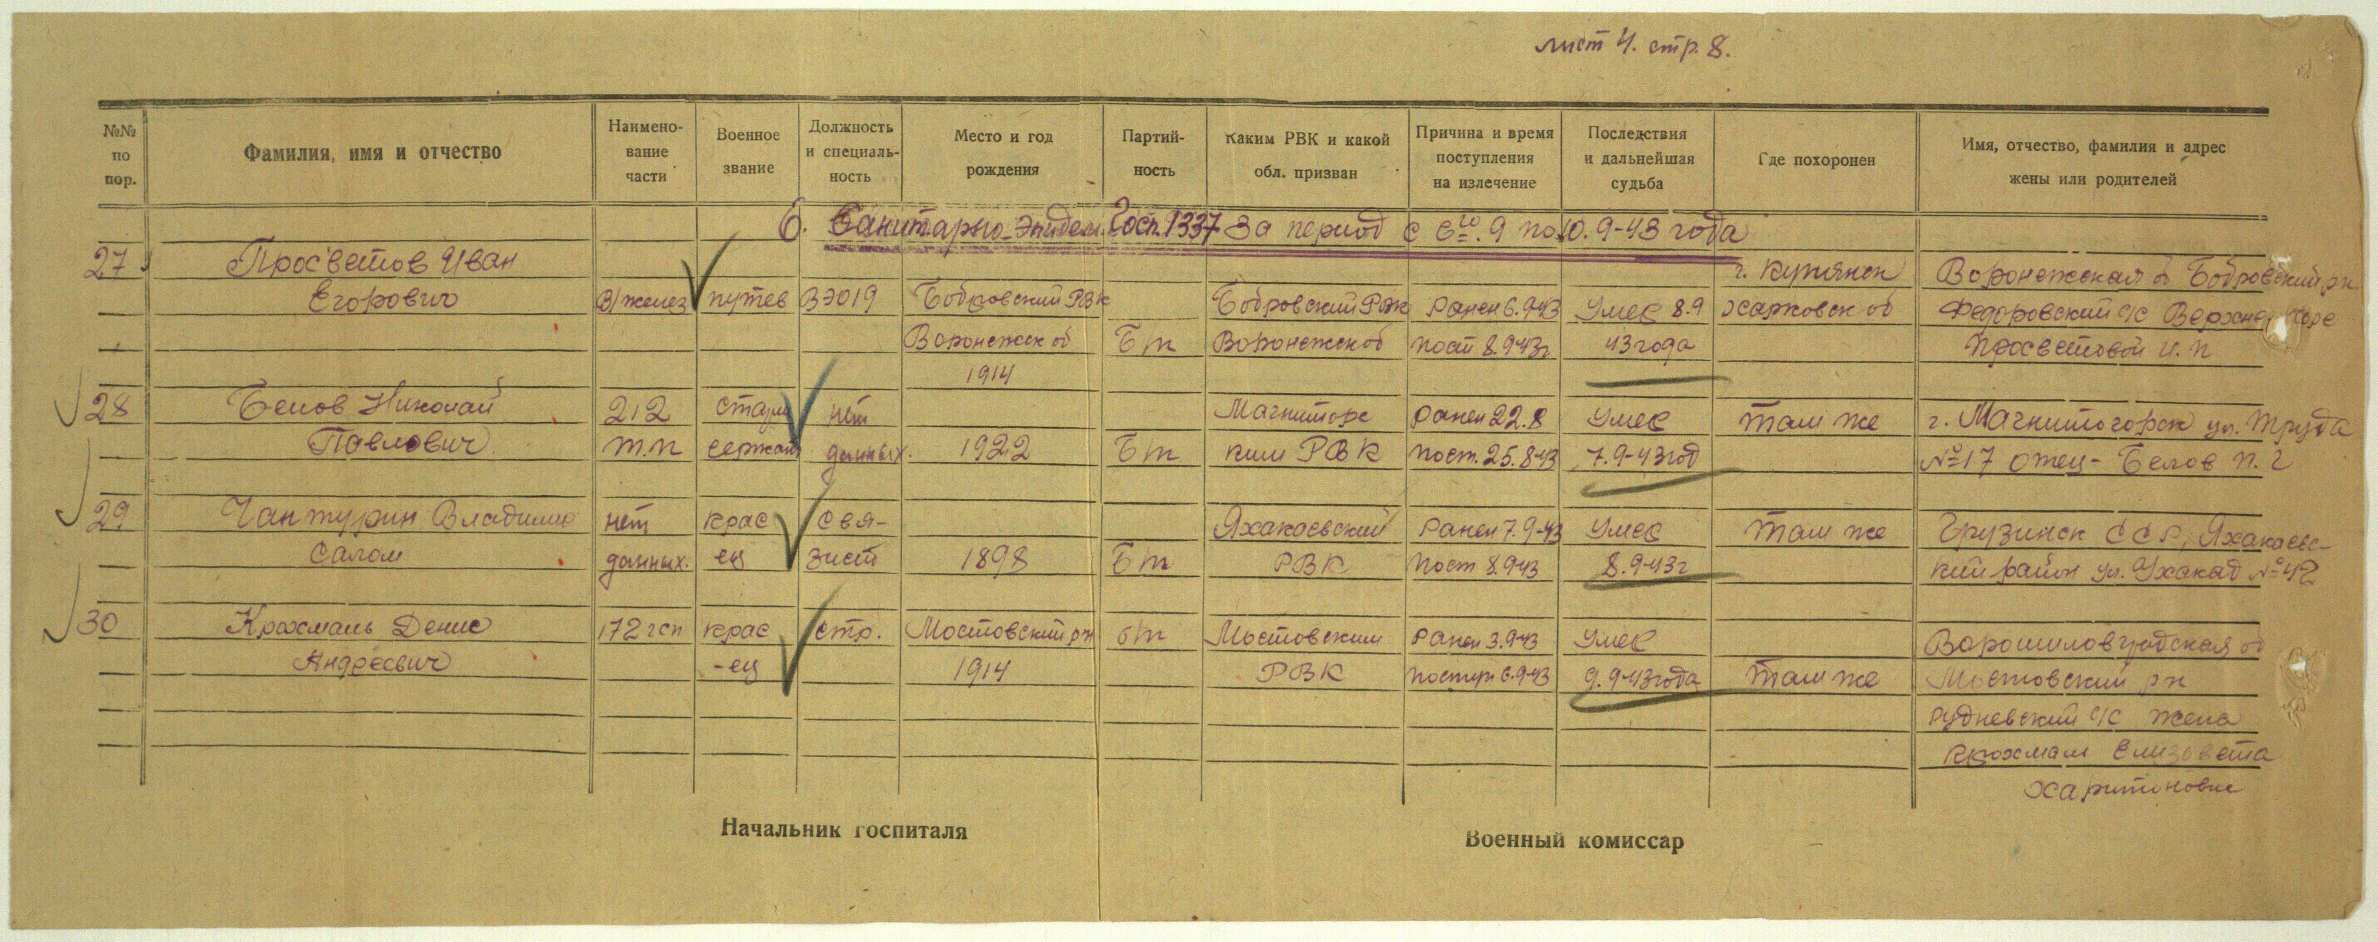 лист 4. стр. 8.
№№ по пор.
Фамилия, имя и отчество
Наимено-вание части
Военное звание
Должность и специаль-ность
Место и год рождения
Партий-ность
Каким РВК и какой обл. призван
Причина и время поступления на излечение
Последствия и дальнейшая судьба
Где похоронен
Имя, отчество, фамилия и адрес жены или родителей
6. Санитарно-Эпидем. Госп. 1337 За период с 6го.9 по 10.9-43 года
27 Просветов Иван г. Купянск Воронежская об Бобровский рн
Егорович В/желез путев ВЭО19 Бобровский РВК Бобровский РВК Ранен 6.9-43 Умер 8.9 Харковск об Федоровский с/с
Воронежск об Б/п Воронежск об пост 8.9-43г 43 года Просветовой И. П
1914
28 Белов Николай 212 старш нет Магниторс ранен 22.8 умер Там же г. Магнитогорск ул. Труда
Павлович т.п сержант данных. 1922 Б/п ким РВК пост. 25.8-43 7.9-43 год №17 отец - Белов П. Г
29 Чантурин Владимир нет крас свя- Яхакаевский Ранен 7.9-43 умер Там же Грузинск ССР, Яхакаевс-
Салом данных. ец зист 1898 Б/п РВК пост 8.9-43 8.9-43г кий район ул. Ухакад №42
30 Крохмаль Денис 172 гсп крас стр. Мостовский рн б/п Мостовским Ранен 3.9-43 умер Ворошиловградская об
Андреевич -ец 1914 РВК поступ 6.9-43 9.9-43 года Там же Мостовский рн
Рудневский с/с жена
Крохмал Елизовета
Харитиновне
Начальник госпиталя
Военный комиссар